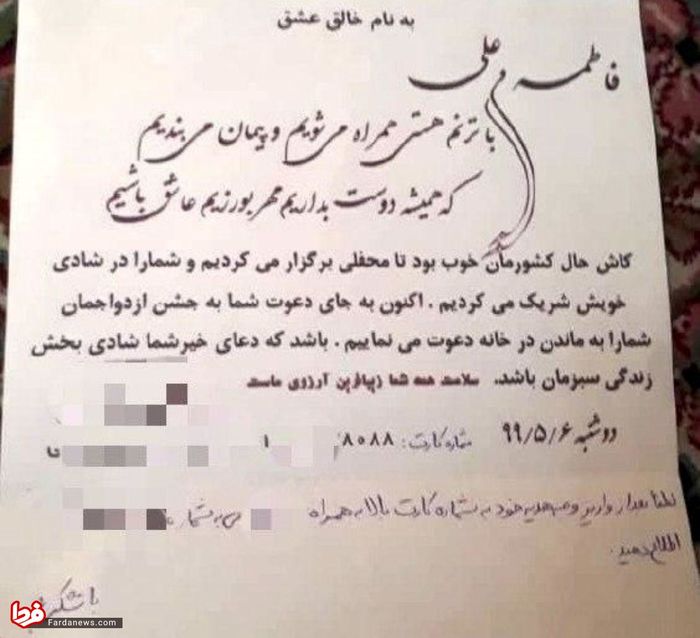 به نام خالق عشق
فاطمه علی
با ترنم هستی همراه می شویم و پیمان می بندیم
که همیشه دوست بداریم مهر بورزیم عاشق باشیم
کاش حال کشورمان خوب بود تا محفلی برگزار می کردیم و شمارا در شادی
خویش شریک می کردیم . اکنون به جای دعوت شما به جشن ازدواجمان
شمارا به ماندن در خانه دعوت می نماییم . باشد که دعای خیرشما شادی بخش
زندگی سبزمان باشد. سلامت همه شما زیباترین آرزوی ماست
دوشنبه ۹۹/۵/۶ شماره کارت : ۸۰۸۸ ۱
لطفا بعداز واریز وجه هدیه خود به شماره کارت بالا به همراه
اطلاع دهید.
باتشکر
فردا
Fardanews.com